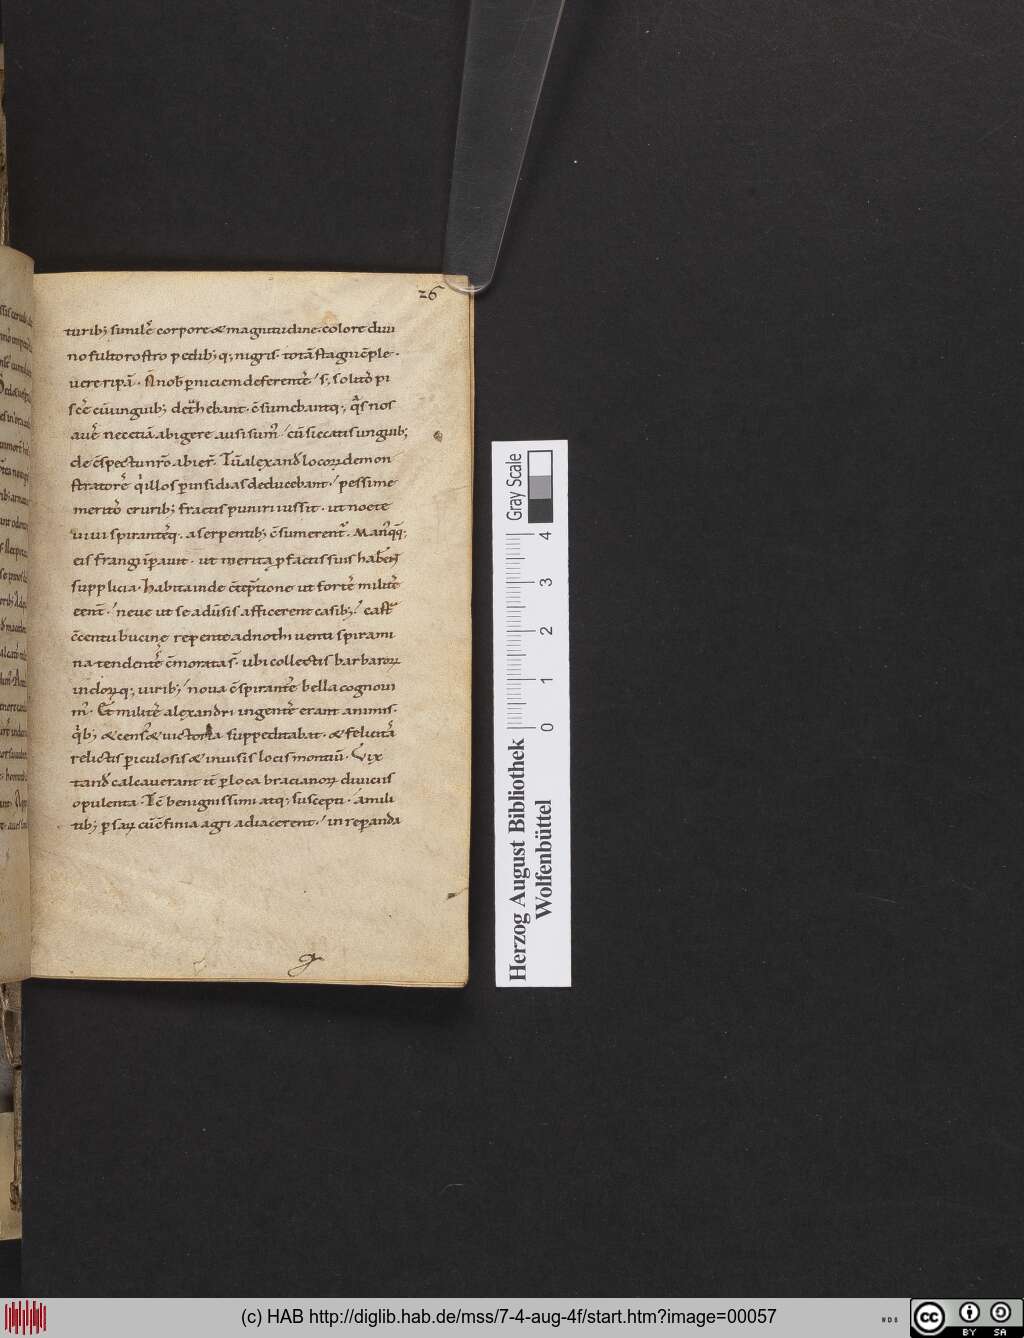 26
turib; simile corpore & magnitudine. colore divi
no fulto rostro pedib; q; nigris. totā stagni ēple.
vere ripā. N nob pniciem deferente s; solito pi
sce cū unguib; detrhebant. c̄sumebantq;, q̄s nos
ave nec etiā abigere ausi sum. cū siccatis unguib;
de c̄spectu nr̄o abier. Tū alexand locorꝝ demon
stratore q illos p insidias deducebant. pessime
merito crurib; fractis puniri iussit. ut nocte
vivi spiranteq. a serpentib; c̄sumerent. Manqq;
eis frangi ipavit. ut merita p factis suis haben
supplicia. Habita inde c̄teptione ut forte milite
eent. neve ut se adūsis afficerent casib; cast
c̄centu bucine repente ad nothi venti spirami
na tendente c̄morata s. ubi collectis barbarorꝝ
indorꝝ q;, virib; nova c̄spirante bella cognovi
m. Et milite alexandri ingente erant animis.
qb; & cens & victoria suppeditabat. & felicita
relictis piculosis & invisis locis montiū. Vix
tand calcaverant it p loca bracianorꝝ diviciis
opulenta. Ic benignissimi atq; suscepti. a mili
tib; psarꝝ cū c̄finia agri adiacerent. in repanda
Gray Scale
0 1 2 3 4
Herzog August Bibliothek
Wolfenbüttel
(c) HAB http://diglib.hab.de/mss/7-4-aug-4f/start.htm?image=00057
WDB
cc BY SA